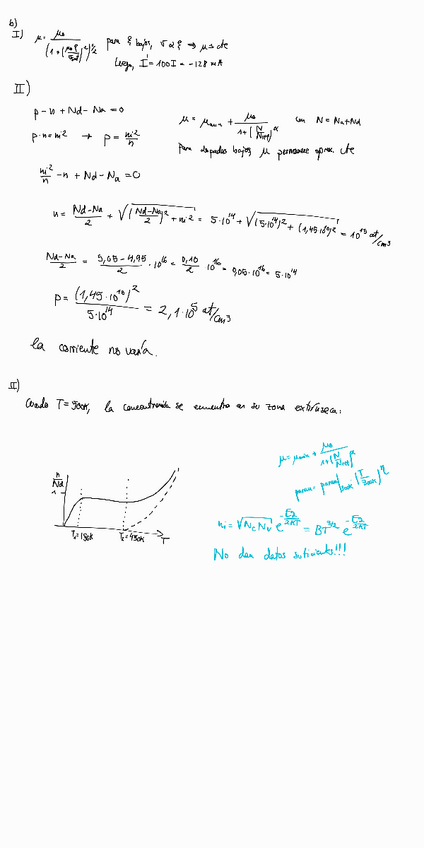 b)
I) μ = μ₀ / (1+(μ₀ξ/vsat)²)^1/2 para ξ bajos, v α ξ ⇒ μ ≃ cte
Luego, I' = 100I = -128 mA
II)
p - n + Nd - Na = 0
μ = μmin + μ₀ / 1+(N/Nref)^α con N = Na+Nd
p·n = ni² → p = ni²/n
Para dopados bajos μ permanece aprox. cte
ni²/n - n + Nd - Na = 0
n = Nd-Na/2 + √((Nd-Na/2)² + ni²) = 5·10¹⁴ + √((5·10¹⁴)² + (1,45·10¹⁰)²) = 10¹⁵ at/cm³
Nd-Na/2 = 5,05-4,95/2 · 10¹⁶ = 0,10/2 10¹⁶ = 0,05·10¹⁶ = 5·10¹⁴
p = (1,45·10¹⁰)²/5·10¹⁴ = 2,1·10⁵ at/cm³
la corriente no varía.
II)
Cuando T = 300K, la concentración se encuentra en su zona extrínseca:
μ = μmin + μ₀ / 1+(N/Nref)^α
param = param|300K (T/300K)^η
n/Nd
1
T₁=150K T₂=450K T
ni = √NcNv e^-Eg/2KT = BT^3/2 e^-Eg/2KT
No dan datos suficientes!!!